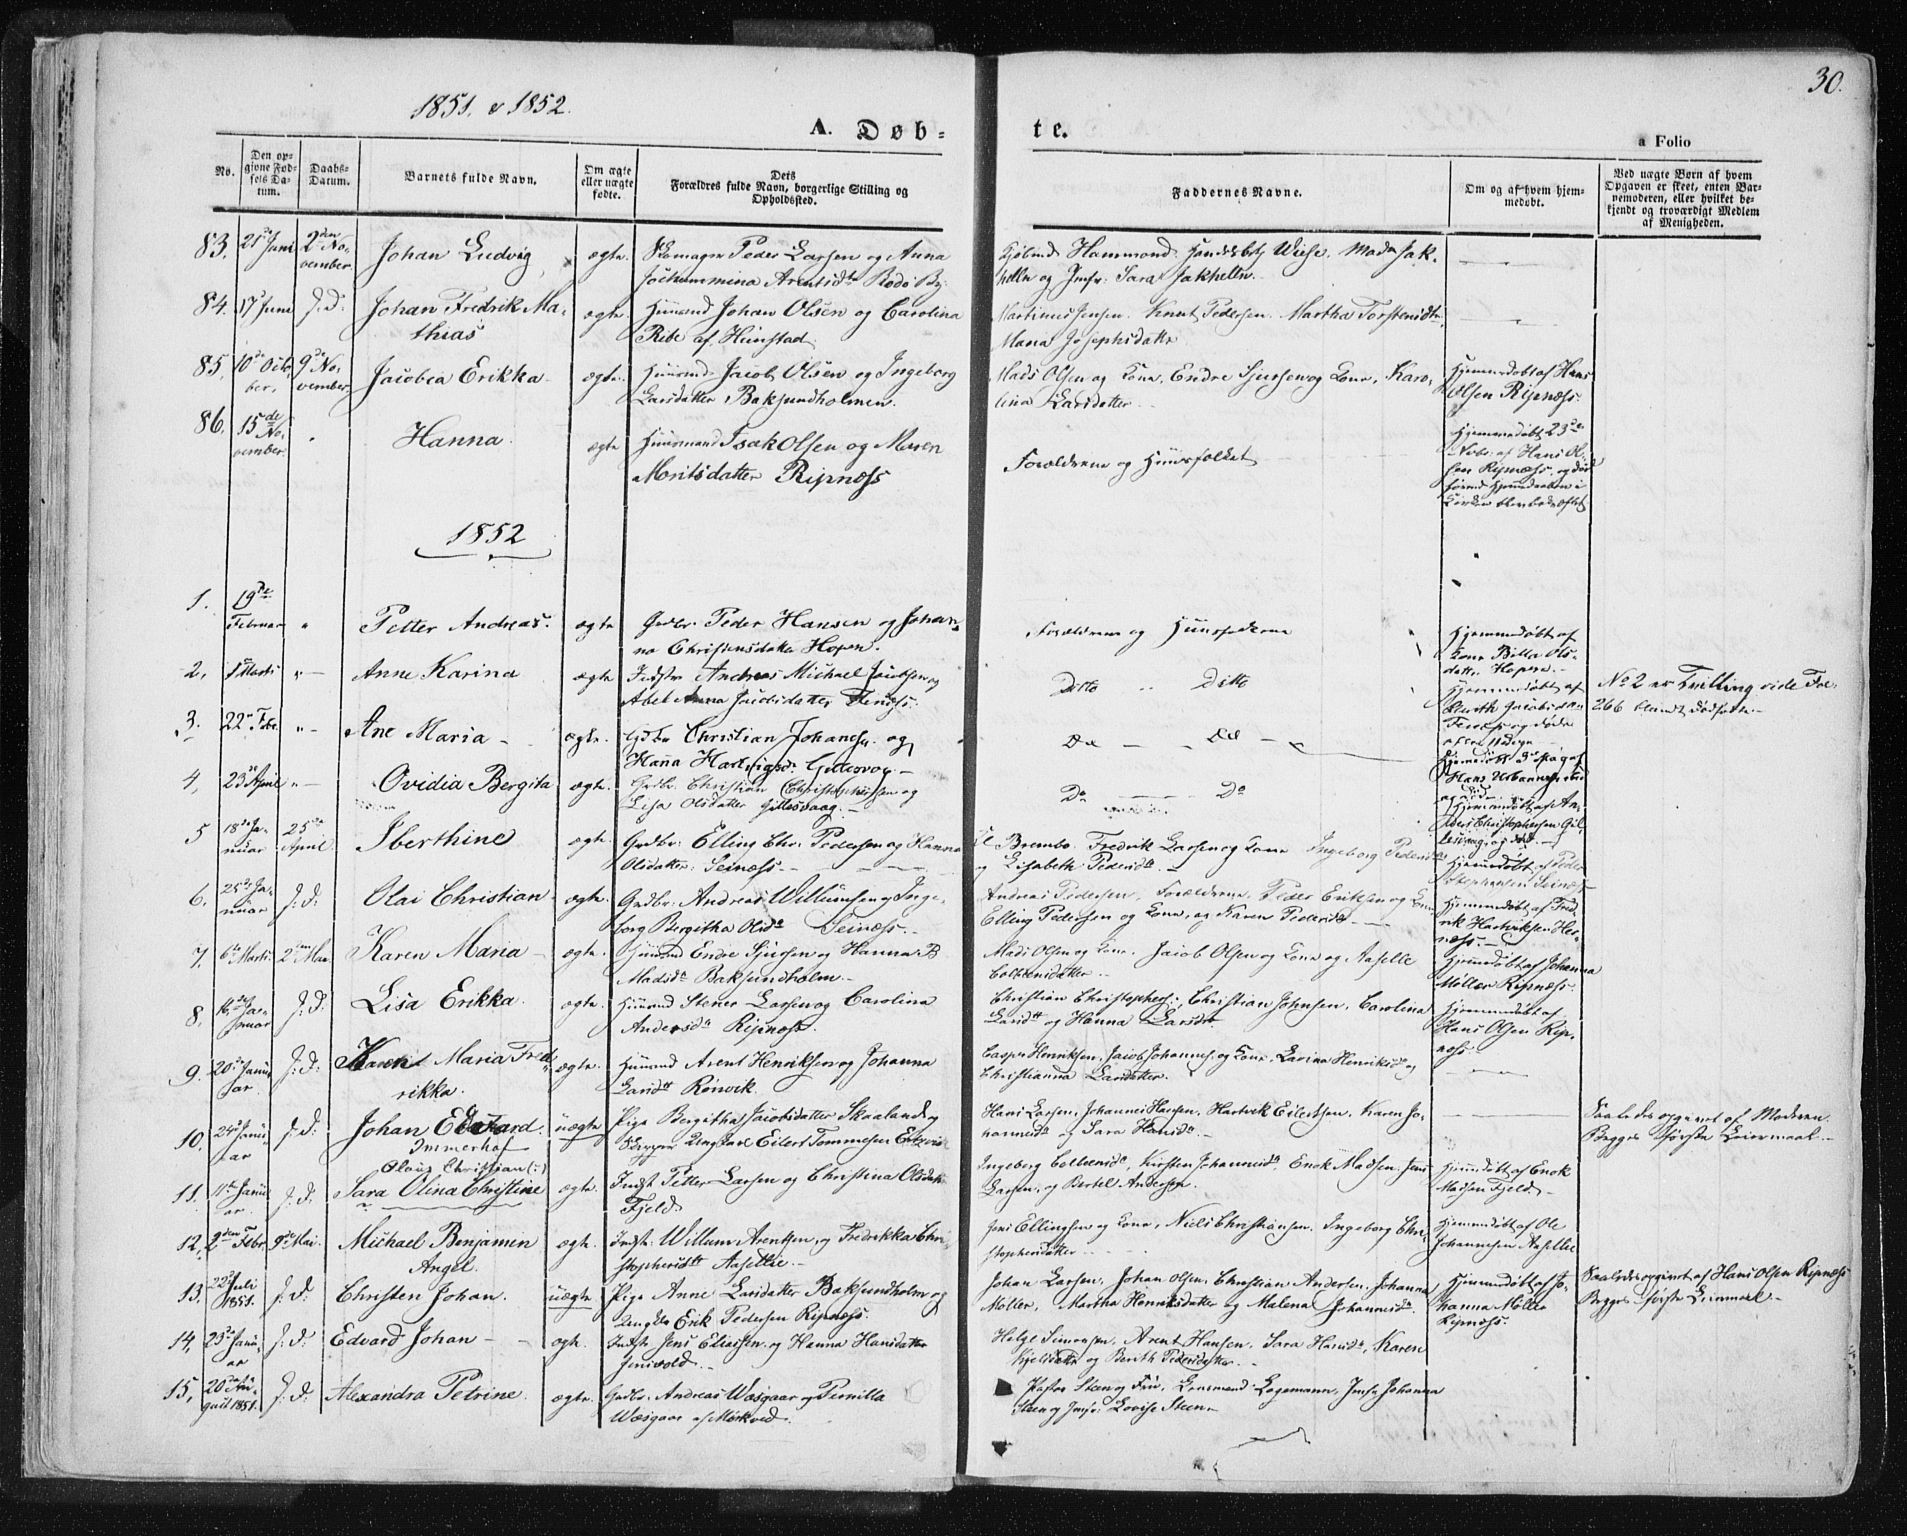 30.
1851. & 1852.
A. Døb-
te.
a Folio
No.
Den op-
givne Fød-
sels Da-
tum.
Daabs-
Datum.
Barnets fulde Navn.
Om ægte
eller uægte
fødte.
Dets
Forældres fulde Navn, borgerlige Stilling og
Opholdssted.
Faddernes Navne.
Om og af hvem hjem-
medøbt.
Ved uægte Børn af hvem
Opgaven er skeet, enten Bar-
nemoderen, eller hvilket be-
kjendt og troværdigt Medlem
af Menigheden.
83. 21de Juni 2den No-
vember
Johan Ludvig
ægte.
Skomager Peder Larsen og Anna
Jochummina Arentsdtr Bodö By.
Hammond Wiese. Mad. Jak-
helln og Jmfr. Sara Jakhelln.
84. 17 Juni J.D.
Johan Fredrik Ma-
thias
ægte.
Huusmd Johan Olsen og Carolina
Ribe af Hunstad
Martinus Jensen. Knut Pedersen. Martha Torstensdtr.
Maria Josephsdatter
85. 10de Octo-
ber. 9de No-
vember
Jacobea Erikka
ægte.
Huusmd Jacob Olsen og Ingeborg
Larsdatter Baksundholmen.
Mads Olsen og Kone, Endre Sjursen og Kone, Karo-
lina Larsdatter.
Hjemmedöbt af Hans
Olsen Ripnæss
86. 15de
No-
vember
Hanna
ægte
Huusmand Isak Olsen og Maren
Moritsdatter Ripnæss
Forældrene og Huusfolket
Hjemmedöbt 23de
Novbr. af Hans Ol-
sen Ripnæss og död
förend Hjemmedaaben i
Kirken blev bekræftet
1852
1. 19de
Februar "
Petter Andreas.
ægte
Grdbr. Peder Hansen og Johan-
na Christensdatter Hopen.
Forældrene og Huusfaderne
Hjemmedöbt af
Kone Ols-
datter Hopen.
2. 1ste Marts "
Anne Karina
ægte
Indstr. Andreas Michael Jacobsen og
Abel Anna Jacobsdatter Fenæss.
Ditto " Ditto
Hjemmedöbt af
Berith Jacobsdatter
Fenæss og döde
efter 11 Dage
No 2 er Tvilling vide Fol:
266 blandt dödfödte
3. 22de Febr. "
Ane Maria
ægte.
Gdbr Christian Johansen og
Hana Hartvigsdr. Gillesvog
Do Do
Hjemmedöbt
Hans Urbannssen
4. 23de April "
Ovidia Bergita
ægte.
Grdbr. Christian Christophersen og
Lisa Olsdatter Gillesvaag.
Do Do
Hjemmedöbt af An-
ders Christophersen Gil-
lesvaag, og död.
5 18de Ja-
nuar 25de
April
Iberthine
ægte
Grdbr. Elling Chr. Pedersen og Hanna
Olsdatter Seinæss.
Brembo. Fredrik Larsen og Kone Ingeborg Pedersdtr
og Lisabeth Pedersdtr.
Hjemmedöbt af Peder
Stephensen Seinæss
6. 25de Ja-
nuar J.D.
Olai Christian
ægte.
Grdbr. Andreas Willumsen og Inge-
borg Bergitha Olsdtr Seinæss.
Andreas Pedersen, Forældrene, Peder Eriksen og Kone
Elling Pedersen og Kone, og Karen Pedersdtr
Hjemmedöbt af Fred-
rik Hartviksen Her-
næss.
7. 6te Marts 2den Mai
Karen Maria
ægte.
Huusmd Endre Sjursen og Hanna B.
Madsdtr Baksundholm.
Mads Olsen og Kone. Jacob Olsen og Kone og Aaselle
Colbensdatter
Hjemmedöbt af Johanna
Möller Ripnæss.
8. 16de Ja-
nuar J.D.
Lisa Erikka.
ægte.
Huusmd Stener Larsen og Carolina
Andersdtr Ripnæss.
Christian Christophers., Christian Johnsen, Carolina
Larsdtr og Hanna Larsdtr
Hjemmedöbt af
Hans Olsen Rip-
næss
9. 20de Janu-
ar. J.D.
Karen Maria Fred-
rikka.
ægte.
Huusmd Arent Henriksen og Johanna
Larsdtr Rönvik.
Casper Henriksen, Jacob Johannes. og Kone, Lavina Henriksdtr og
Christianna Larsdatter.
10. 24de Janu-
ar J.D.
Johan Edvard
Immerhof
uægte
Pige Bergitha Jacobsdatter Skaaland og
Ungkarl Eilert Tommesen
Hans Larsen, Johannes Hansen, Hartvik Eilertsen, Karen Jo-
hannesdtr og Sara Hansdtr.
Saaledes opgivet af Moderen.
Begges förste Leiermaal.
11. 11te Janu-
ar. J.D.
Olaus Christian
Sara Olina Christine
ægte.
Indst Petter Larsen og Christina Olsdatter
Fjeld
Ingeborg Colbensdtr, Kirsten Johannesdtr, Enok Madsen, Jens
Larsen, og Bertel Andersen.
Hjemmedöbt af Enok
Madsen Fjeld.
12. 2den Febr. 9de Mai.
Michael Benjamin
Angel.
ægte.
Indst: Willum Arentsen og Fredrikka Chri-
stophersdtr Aasellie.
Jens Ellingsen og Kone, Niels Christiansen, Ingeborg Chri-
stophersdatter
Hjemmedöbt af Ole
Johannesen Aasellie
13. 22de Juli
1851. J.D.
Christen Johan.
uægte
Pige Anne Larsdatter Baksundholm og
Ungkl Erik Pedersen Ripnæss.
Johan Larsen, Johan Olsen, Christian Andersen, Johanna
Möller, Martha Henriksdatter og Malena Johannesdtr
Hjemmedöbt af Jo-
hanna Möller
Ripnæss.
Saaledes opgivet af Hans Olsen Ripnæss
Begges förste Leiermaal
14. 23de Janu-
ar J.D.
Edvard Johan
ægte.
Indst Jens Eliassen og Hanna Hansdatter
Jensvold.
Helge Simonsen, Arent Hansen, Sara Hansdtr, Karen
Kjelsdatter og Berith Pedersdatter.
15. 20de Au-
gust 1851. J.D.
Alexandra Petrine.
ægte.
Grdbr. Andreas Wæsgaar og Pernilla
Wæsgaar af Mörkved.
Pastor Steen og Frue, Lensmand Lagemann, Jmfr Johanna
Steen og Jmfr. Lovise Steen.